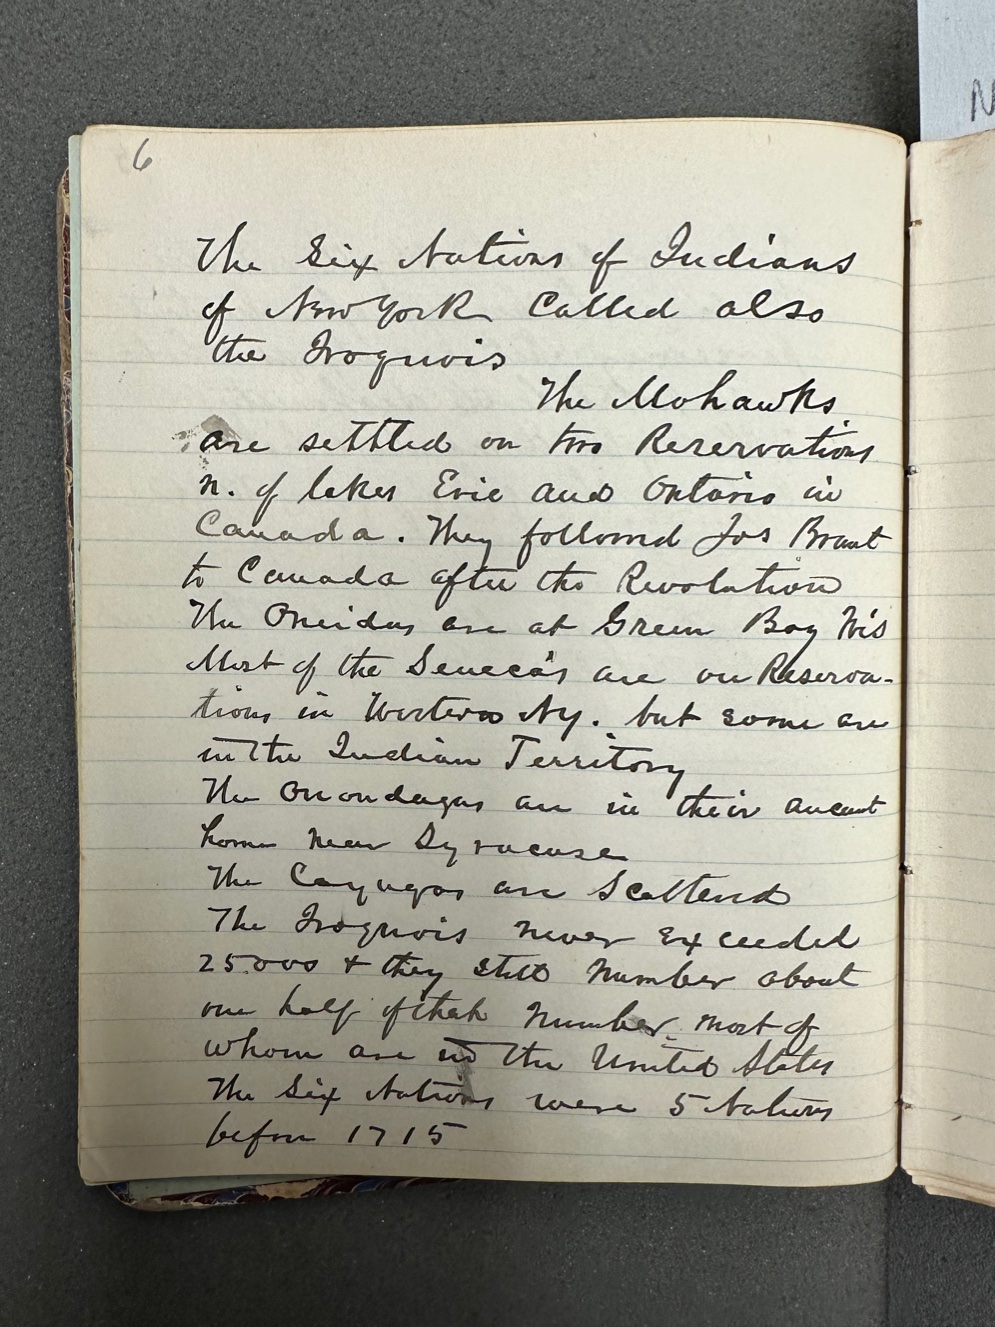 6
The Six Nations of Indians
of New York Called also
the Iroquois
The Mohawks
are settled on two Reservations
n. of lakes Erie and Ontario in
Canada. They followed Jos Brant
to Canada after the Revolution
The Oneidas are at Green Bay Wis
Most of the Seneca's are on Reserva-
tions in Western Ny. but some are
in the Indian Territory
The Onondagas are in their ancient
home near Syracuse
The Cayugas are Scattered
The Iroquois never Exceeded
25.000 & they still number about
one half of that number most of
whom are in the United States
The Six Nations were 5 Nations
before 1715
N